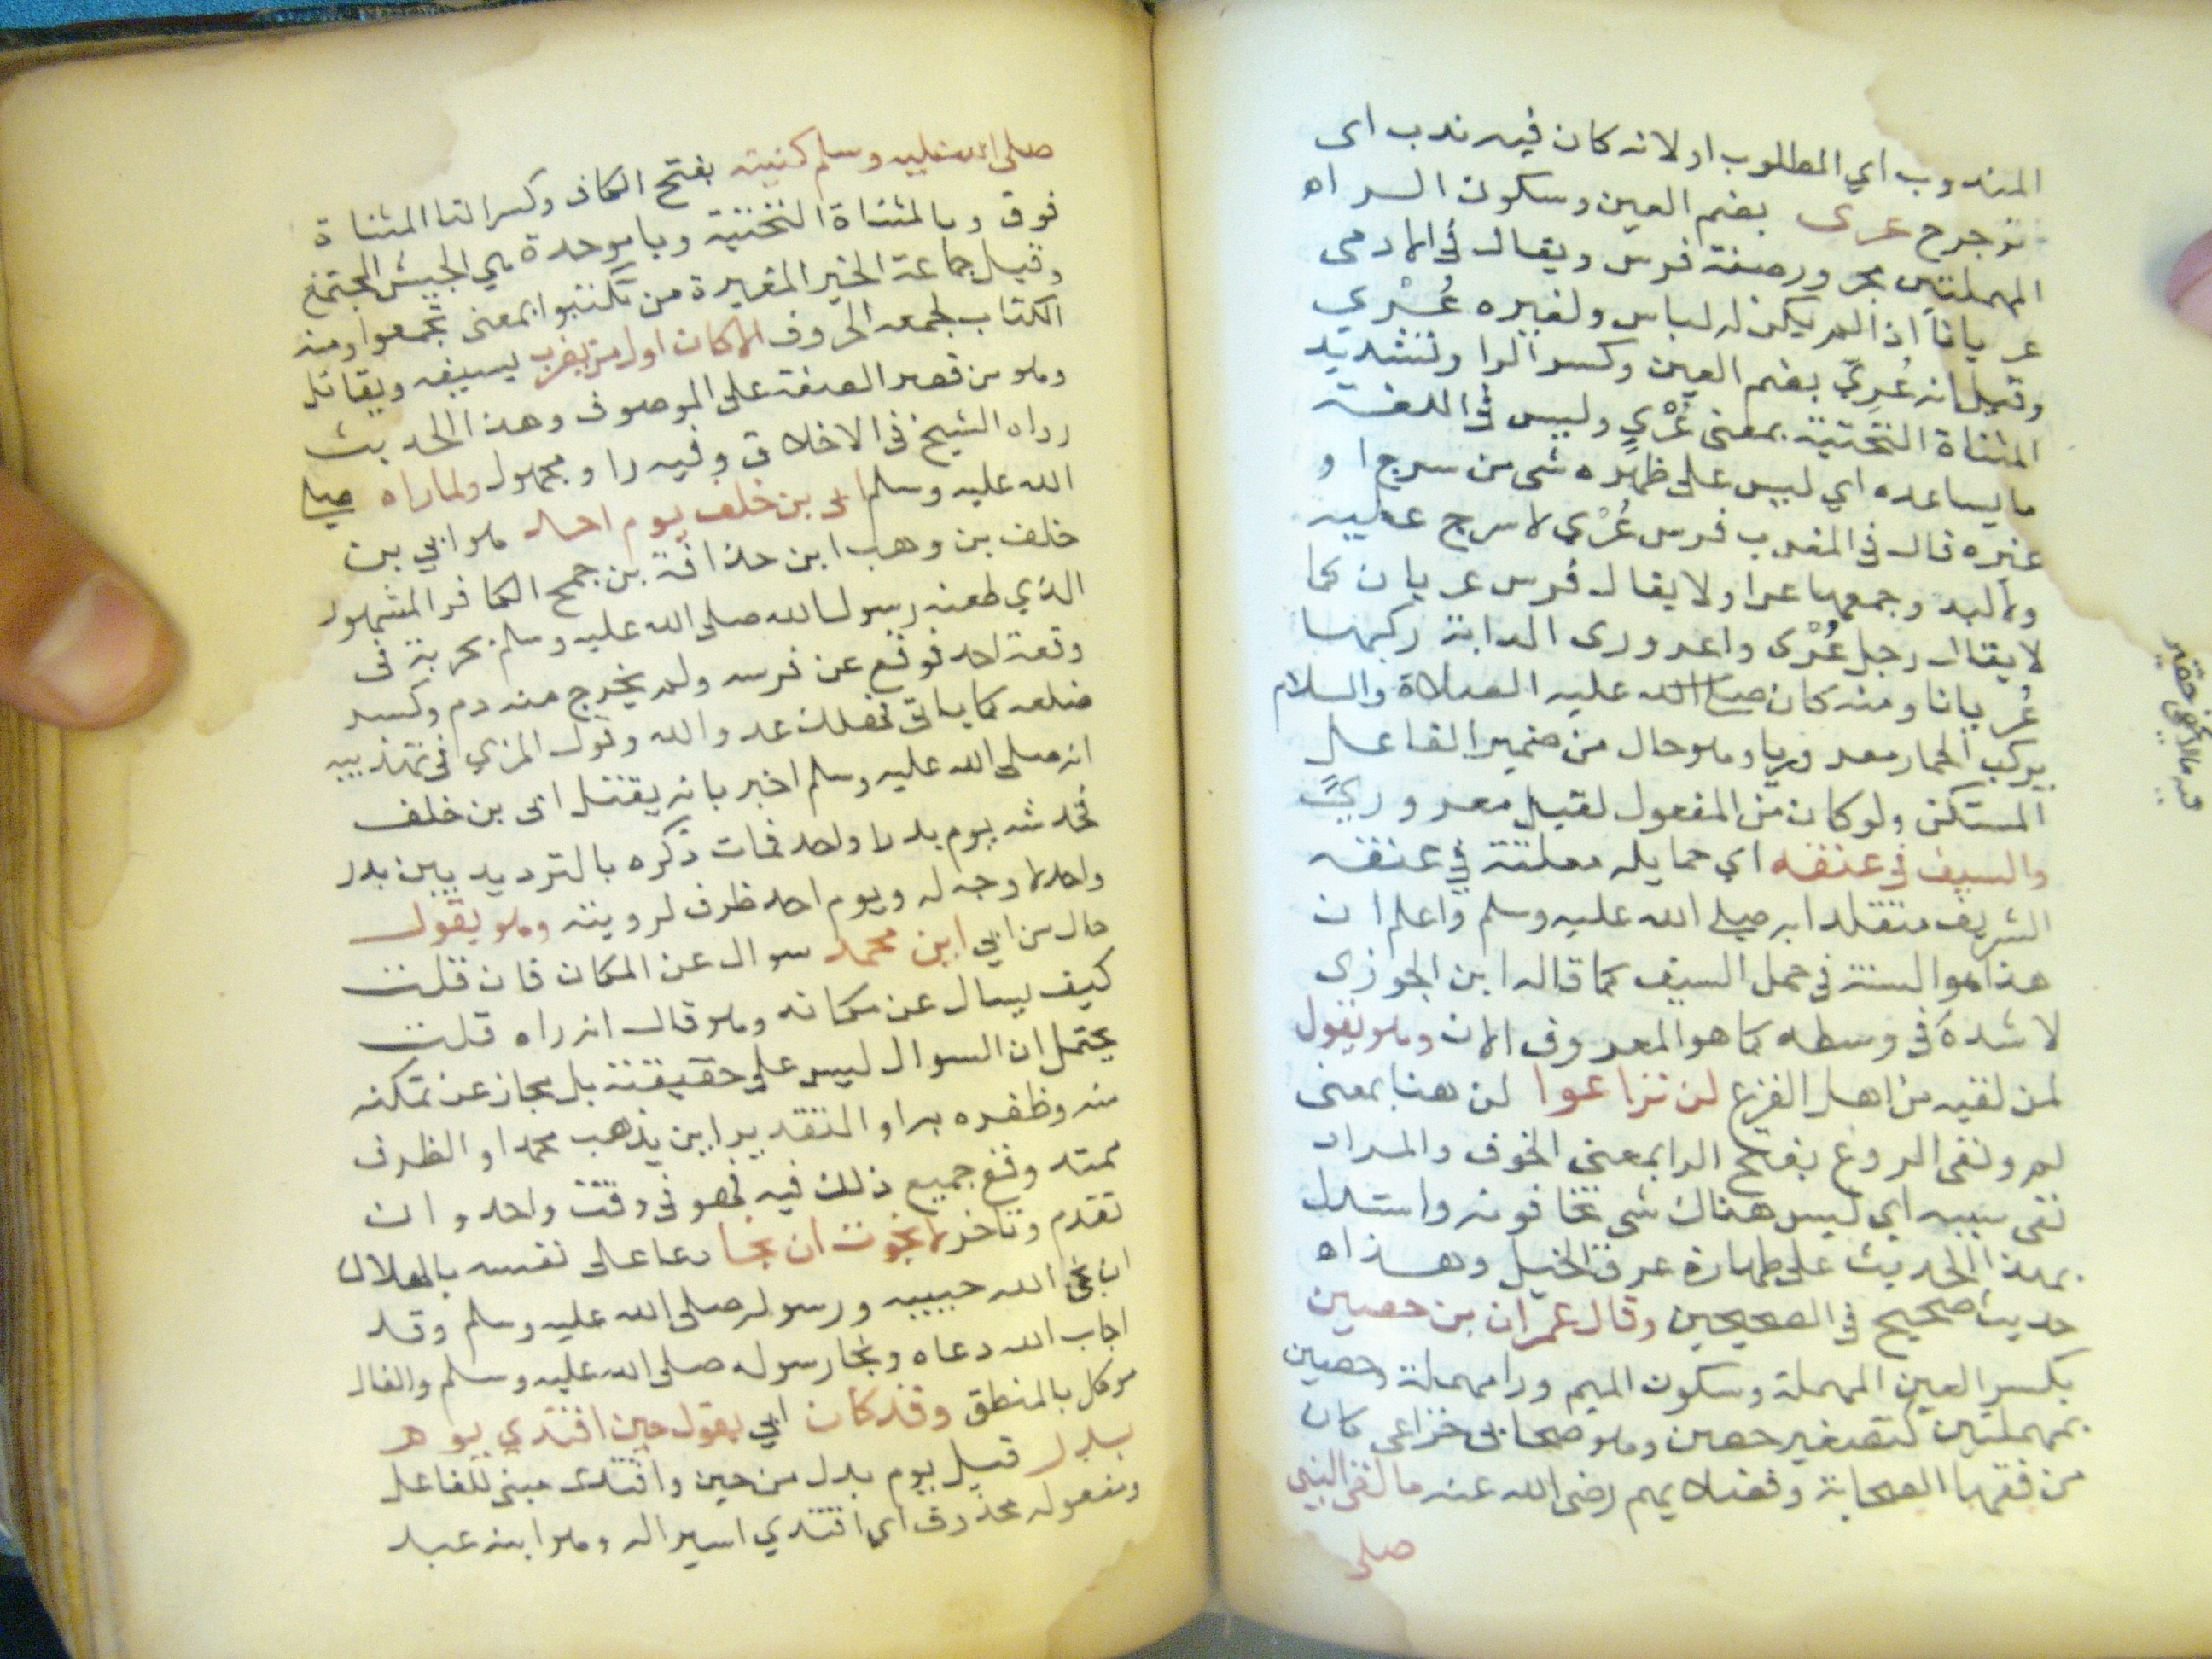 المندوب اي المطلوب او لانه كان فيه ندب اى
توجرح عرى بضم العين وسكون الراه
المهملتين مجرور صفة فرس ويقال في الادمى
عريانا اذا لم يكن له لباس ولغيره عُرْي
وقيل انه عُرِيّ بضم العين وكسر الرا وتشديد
المثناة التحتية بمعنى عُرْي وليس في اللغة
ما يساعده اي ليس على ظهره شى من سرج او
غيره قال في المغرب فرس عُرْي لا سرج عليه
ولا لبد وجمعها عرا ولا يقال فرس عريان كما
لا يقال رجل عُرْى واعرورى الدابة ركبها
عُريانا ومنه كان صلى الله عليه الصلاة والسلام
يركب الحمار معروريا وهو حال من ضمير الفاعل
المستكن ولو كان من المفعول لقيل معروريً
والسيف في عنقه اي حمايله معلقة في عنقه
الشريف متقلدا به صلى الله عليه وسلم واعلم ان
هذا هو السنة في حمل السيف كما قاله ابن الجوزى
لا شده في وسطه كما هو المعروف الان وهو يقول
لمن لقيه من اهل الفزع لن تراعوا لن هنا بمعنى
لم ونفى الروع بفتح الرا بمعنى الخوف والمراد
نفى سببه اي ليس هناك شى تخافونه واستدل
بهذا الحديث على طهارة عرق الخيل وهذاه
حديث صحيح في الصحيحين وقال عمران بن حصين
بكسر العين المهملة وسكون الميم ورا مهملة وحصين
بمهملتين كتصغير حصن وهو صحابى خزاعى كان
من فقها الصحابة وفضلايهم رضى الله عنه ما لقى النبي
صلى
صلى الله عليه وسلم كتيبة بفتح الكاف وكسر التا المثناة
فوق وبالمثناة التحتية وبا موحدة هي الجيش المجتمع
وقيل جماعة الخير المغيرة من تكتبوا بمعنى تجمعوا ومنه
الكتاب لجمعه الحروف الا كان اول من يضرب بسيفه ويقاتل
وهو من قصر الصفة على الموصوف وهذا الحديث
رواه الشيخ في الاخلاق وفيه راو مجهول ولما راه صلى
الله عليه وسلم ابى بن خلف يوم احد هو ابي بن
خلف بن وهب ابن حذافة بن جمح الكافر المشهور
الذي طعنه رسول الله صلى الله عليه وسلم بحربة في
وقعة احد فوقع عن فرسه ولم يخرج منه دم وكسر
ضلعه كما ياتى فهلك عدو الله وقول المزي في تهذيبه
انه صلى الله عليه وسلم اخبر بانه يقتل ابى بن خلف
فخدشه يوم بدر او احد فمات ذكره بالترديد بين بدر
واحد لا وجه له ويوم احد ظرف لرويته وهو يقول
حال من ابي اين محمد سوال عن المكان فان قلت
كيف يسال عن مكانه وهو قال انه راه قلت
يحتمل ان السوال ليس على حقيقته بل مجاز عن تمكنه
منه وظفره به او التقدير اين يذهب محمد او الظرف
ممتد وقع جميع ذلك فيه فهو في وقت واحد وان
تقدم وتاخر لا نجوت ان نجا دعا على نفسه بالهلاك
ان نجى الله حبيبه ورسوله صلى الله عليه وسلم وقد
اجاب الله دعاه ونجا رسوله صلى الله عليه وسلم والفال
موكل بالمنطق وقد كان ابي يقول حين افتدي يوم
بدر قيل يوم بدل من حين وافتدى مبنى للفاعل
ومفعوله محذوف اي افتدي اسيرا له وهو ابنه عبد